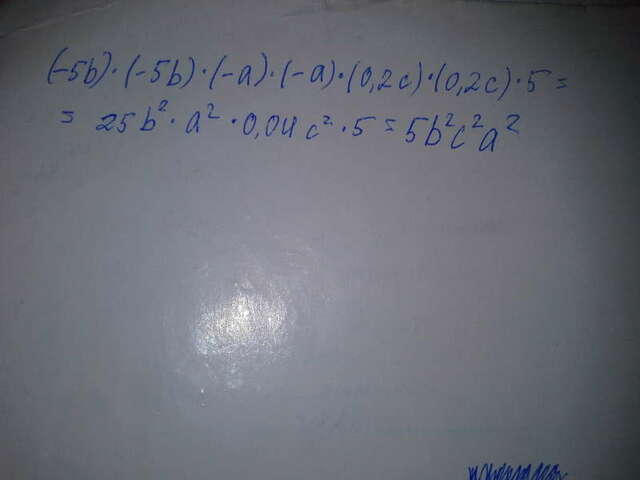 (-5b)·(-5b)·(-a)·(-a)·(0,2c)·(0,2c)·5=
= 25b²·a²·0,04c²·5=5b²c²a²